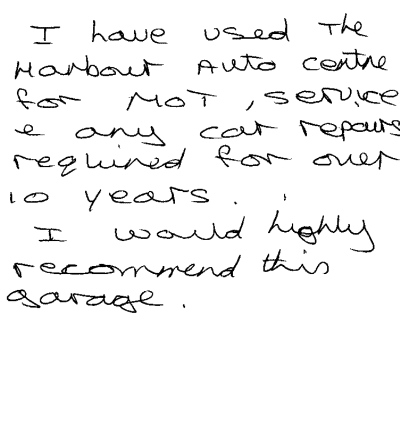 I have used The
Harbour Auto centre
for MOT, service
& any car repairs
required for over
10 years.
I would highly
recommend this
garage.